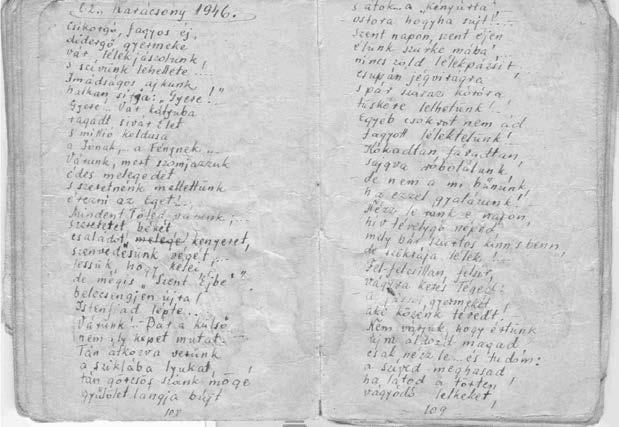 62., Karácsony 1946.
Csikorgó, fagyos éj,
didergő gyermeke
vár lélek jászolunk!
s szívünk lehellete...
Imádságos ajkunk
halkan súgja: "Gyere!"
Gyere... Vár kátyuba
ragadt sivár élet
s millió koldusa
a Jónak,.. a Fénynek...
Várunk, mert szomjazzuk
édes melegedet
s szeretnénk mellettünk
érezni az Eget!..
Mindent Tőled várunk;...
szeretetet, békét
családot, melege kenyeret,
szenvedésünk végét...
Lessük, hogy kelet
de mégis "Szent Éjbe"
belecsengjen újra!
Istenfiad lépte...
Várunk!.. Bár a külső
nem ily képet mutat.
Tán átkozva verünk
a sziklába lyukat,
tán görcsös szánk mögé
gyűlölet lángja bújt
108
s átok... a "kenyúrta"
ostora hogyha sújt!...
Szent napon, szent éjen
életünk szürke mába!
nincs zöld lélekpázsit
csupán jégvirágra
s pár száraz kóróra
tüskére lelhetünk!..
Egyéb csokrot nem ád
fagyott lélektelünk!
Kókadtan, fáradtan,
sújtva robotolunk!
de nem a mi bűnünk,
ha ezzel gyalázunk!
Nézz le ránk e napon,
hív tévelygő néped
mily bár szurtos kinn s benn,
de szikrája lélek!...
Fel-felcsillan, felsír,
vágyva keres Téged:
a jászol gyermekét
aki közénk tévedt!
Nem várjuk, hogy értünk
újra áldozd magad
csak nézz le... és tudom:
a szíved meghasad
ha látod a történ!
vágyódó lelkeket!
109